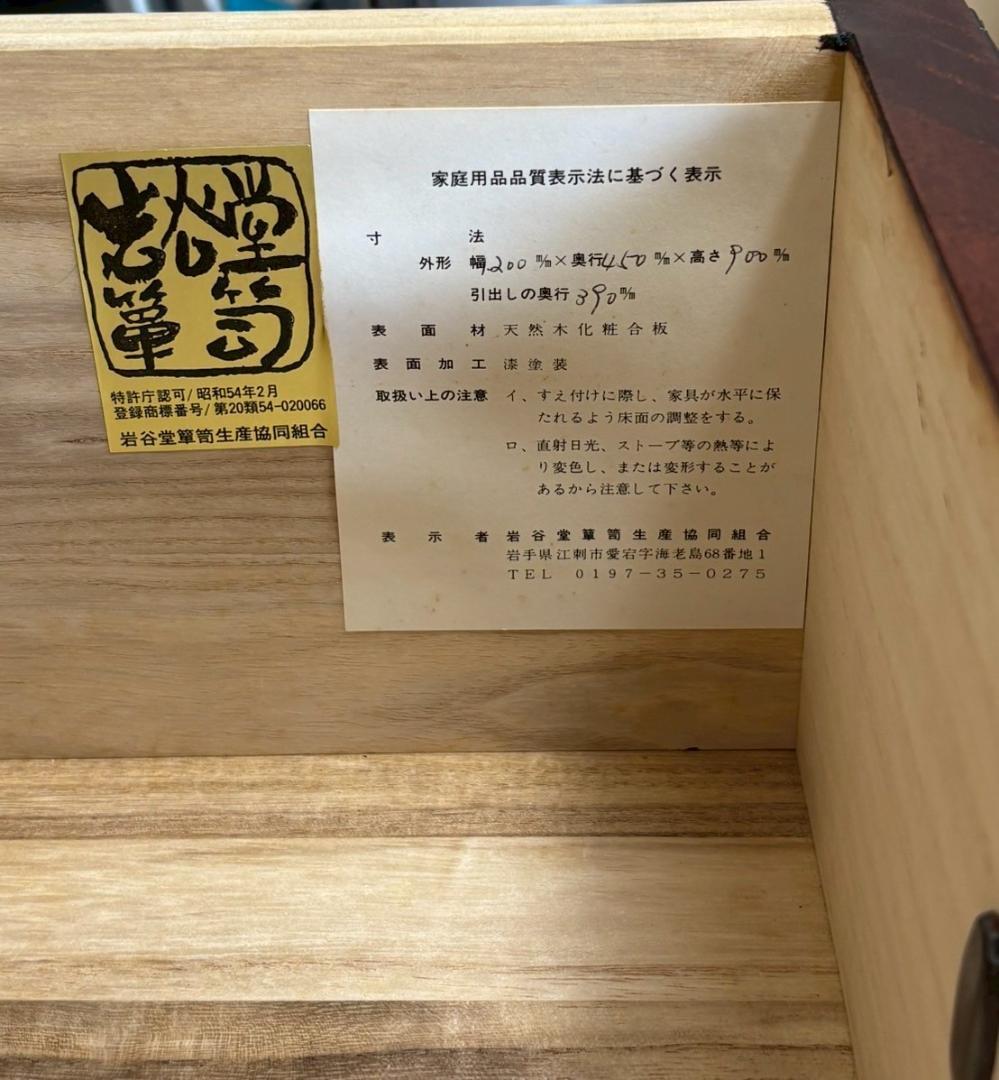 岩谷堂
簞笥
特許庁認可/昭和54年2月
登録商標番号/第20類54-020066
岩谷堂簞笥生産協同組合
家庭用品品質表示法に基づく表示
寸法
外形 幅1200㎜×奥行450㎜×高さ900㎜
引出しの奥行390㎜
表面材 天然木化粧合板
表面加工 漆塗装
取扱い上の注意 イ、すえ付けに際し、家具が水平に保
たれるよう床面の調整をする。
ロ、直射日光、ストーブ等の熱等によ
り変色し、または変形することが
あるから注意して下さい。
表示者 岩谷堂簞笥生産協同組合
岩手県江刺市愛宕字海老島68番地1
TEL 0197-35-0275